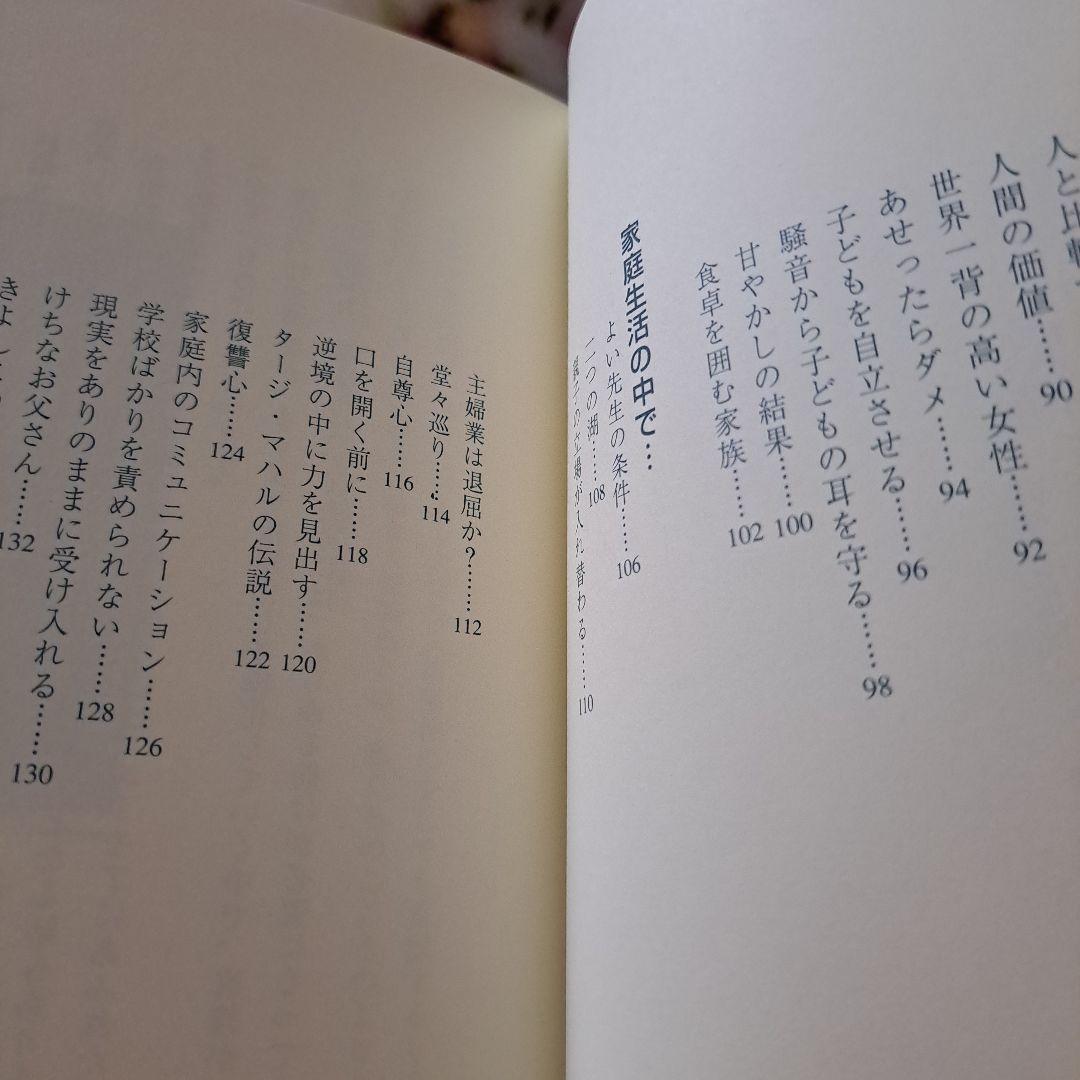 人と比較
人間の価値……90
世界一背の高い女性……92
あせったらダメ……94
子どもを自立させる……96
騒音から子どもの耳を守る……98
甘やかしの結果……100
食卓を囲む家族……102
家庭生活の中で…
よい先生の条件……106
二つの湖……108
親子の立場が入れ替わる……110
主婦業は退屈か?……112
堂々巡り……114
自尊心……116
口を開く前に……118
逆境の中に力を見出す……120
タージ・マハルの伝説……122
復讐心……124
家庭内のコミュニケーション……126
学校ばかりを責められない……128
現実をありのままに受け入れる……130
けちなお父さん……132